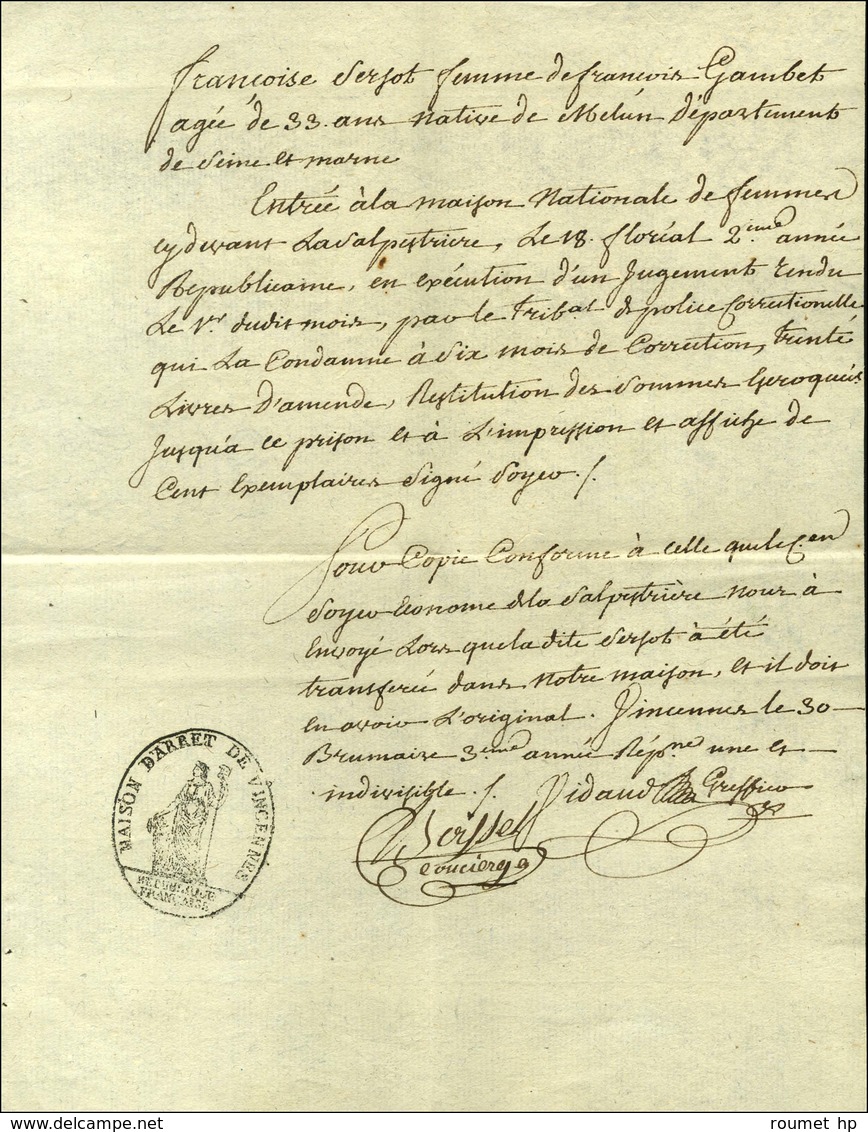 françoise Sersot femme de françois Gambet
agée de 33. ans Native de Melun Département
de Seine et marne
Entrée à la maison Nationale de femmes
cy devant La Salpestrière, Le 18. floréal 2.eme année
Republicaine, en exécution d'un Jugement rendu
Le 1.er dudit mois, par le Trib.al de police Correctionelle
qui La Condamne à Six mois de Correction, trente
Livres d'amende, Restitution des Sommes Escroqués
Jusqu'à ce prison et à L'impression et affiche de
Cent Exemplaires Signé Soyer ./.
Pour Copie Conforme à celle que le C.en
Soyer Econome de la Salpestrière nous à
Envoyé Lors que la dite Sersot à été
transferée dans Notre maison, et il doit
en avoir L'original. Vincennes le 30
Brumaire 3.eme année Rép.ne une et
indivisible ./. Vidaud Greffier
concierge
MAISON D'ARRET DE VINCENNES
REPUBLIQUE
FRANÇAISE
roumet hp